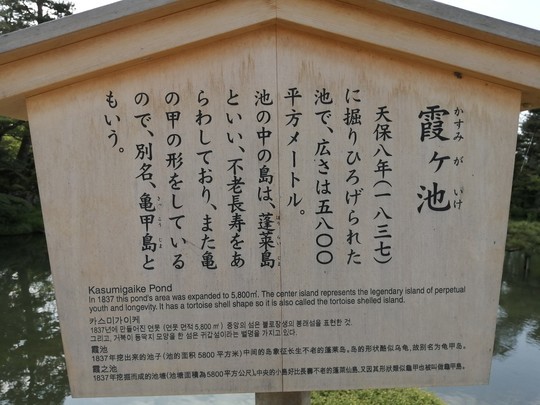 霞ヶ池
かすみ が いけ
天保八年(一八三七)
に掘りひろげられた
池で、広さは五八〇〇
平方メートル。
池の中の島は、蓬莱島
といい、不老長寿をあ
らわしており、また亀
の甲の形をしている
ので、別名、亀甲島と
もいう。
Kasumigaike Pond
In 1837 this pond's area was expanded to 5,800㎡. The center island represents the legendary island of perpetual
youth and longevity. It has a tortoise shell shape so it is also called the tortoise shelled island.
카스미가이케
1837년에 만들어진 연못 (연못 면적 5,800㎡) 중앙의 섬은 불로장생의 봉래섬을 표현한 것.
그리고, 거북이 등딱지 모양을 한 섬은 귀갑섬이라는 별명을 가지고 있다.
霞池
1837年挖出来的池子(池的面积5800平方米)中间的岛象征长生不老的蓬莱岛。岛的形状酷似乌龟,故别名为龟甲岛。
霞之池
1837年挖掘而成的池塘(池塘面積為5800平方公尺)。中央的小島好比長壽不老的蓬萊仙島,又因其形狀類似龜甲也被叫做龜甲島。